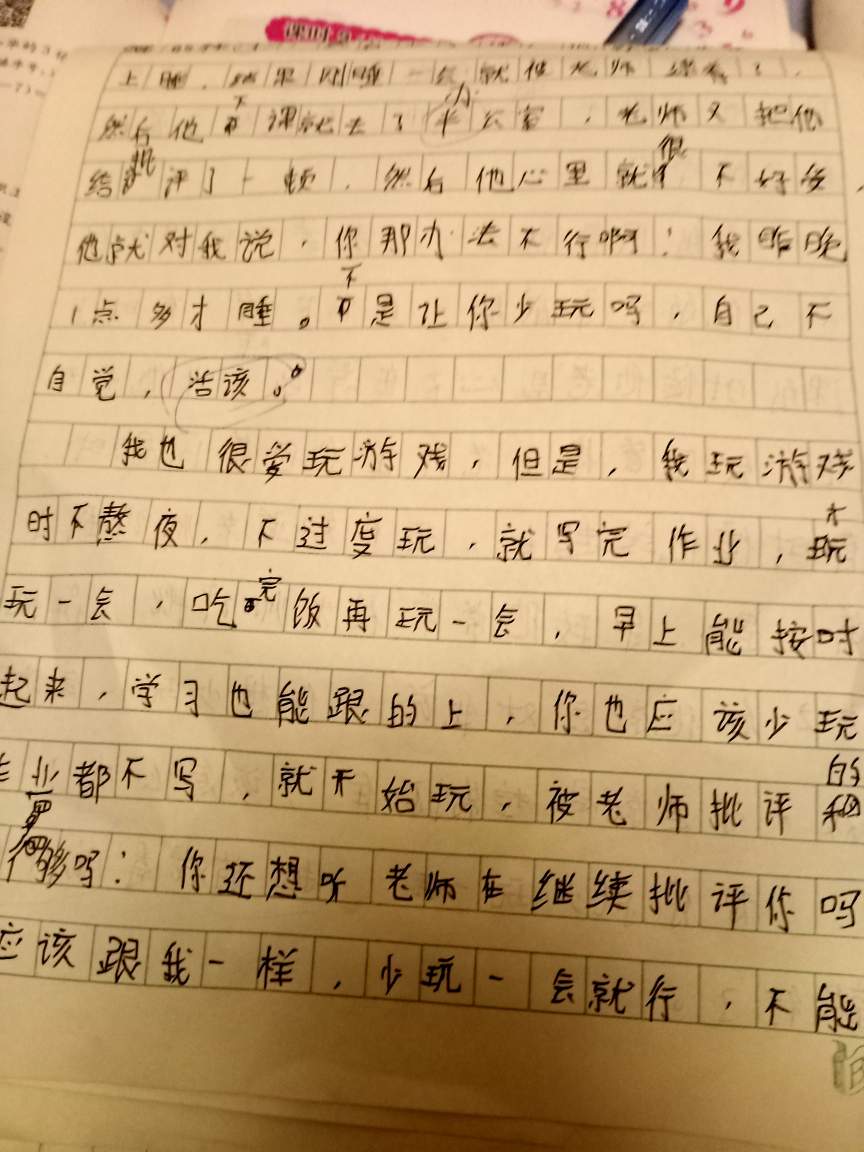 课时
上睡，结果刚睡一会就被老师续看了，
然后他下课就去了办公室，老师又把他
给批评了一顿，然后他心里就很不好受，
他就对我说，你那办法不行啊！我昨晚
1点多才睡。不是让你少玩吗，自己不
自觉，活该。
我也很爱玩游戏，但是，我玩游戏
时不熬夜，不过度玩，就写完作业，才玩
玩一会，吃完饭再玩一会，早上能按时
起来，学习也能跟的上，你也应该少玩
业都不写，就开始玩，被老师批评的
够吗！你还想听老师在继续批评你吗
应该跟我一样，少玩一会就行，不能